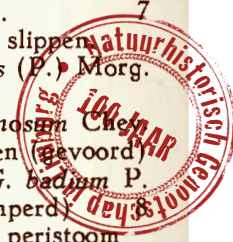 7
slippen.
s (P.) Morg.
nosum Chev.
en (gevoord)
G. badium P.
mperd) 8
peristoom
Natuurhistorisch Genootschap Limburg
100 JAAR